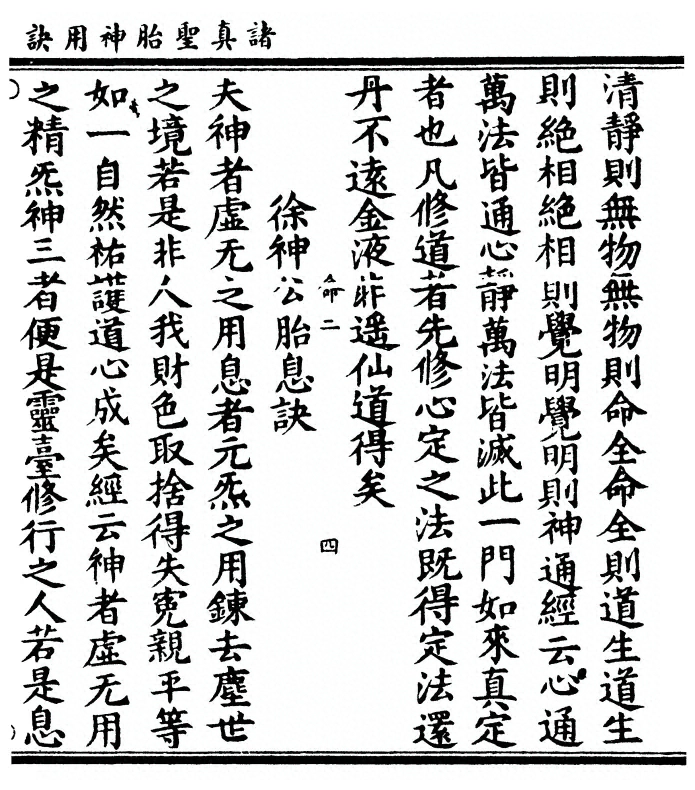 諸真聖胎神用訣
清靜則無物無物則命全命全則道生道生
則絕相絕相則覺明覺明則神通經云心通
萬法皆通心靜萬法皆滅此一門如來真定
者也凡修道若先修心定之法既得定法還
丹不遠金液非遙仙道得矣
命二
四
徐神公胎息訣
夫神者虛无之用息者元炁之用鍊去塵世
之境若是非人我財色取捨得失寃親平等
如一自然祐護道心成矣經云神者虛无用
之精炁神三者便是靈臺修行之人若是息